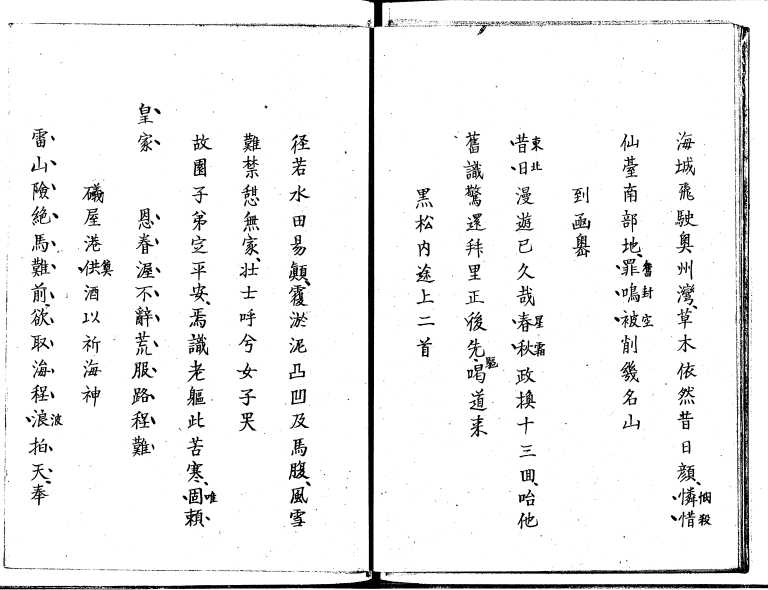 海城飛駛奥州灣、草木依然昔日顔、憐惜
悩殺
仙臺南部地、罪鳴被削幾名山
舊封空
到函嶴
昔日漫遊已久哉春秋政換十三回、咍他
東北
星霜
舊識驚還拜里正後先喝道来
驅
黒松内途上二首
径若水田易顛覆淤泥凸凹及馬腹、風雪
難禁憇無家、壮士呼兮女子哭
故園子弟定平安、焉識老軀此苦寒、固頼
唯
皇家　恩眷渥不辭荒服路程難
礒屋港供酒以祈海神
奠
雷山險絶馬難前、欲取海程浪拍天、奉
波